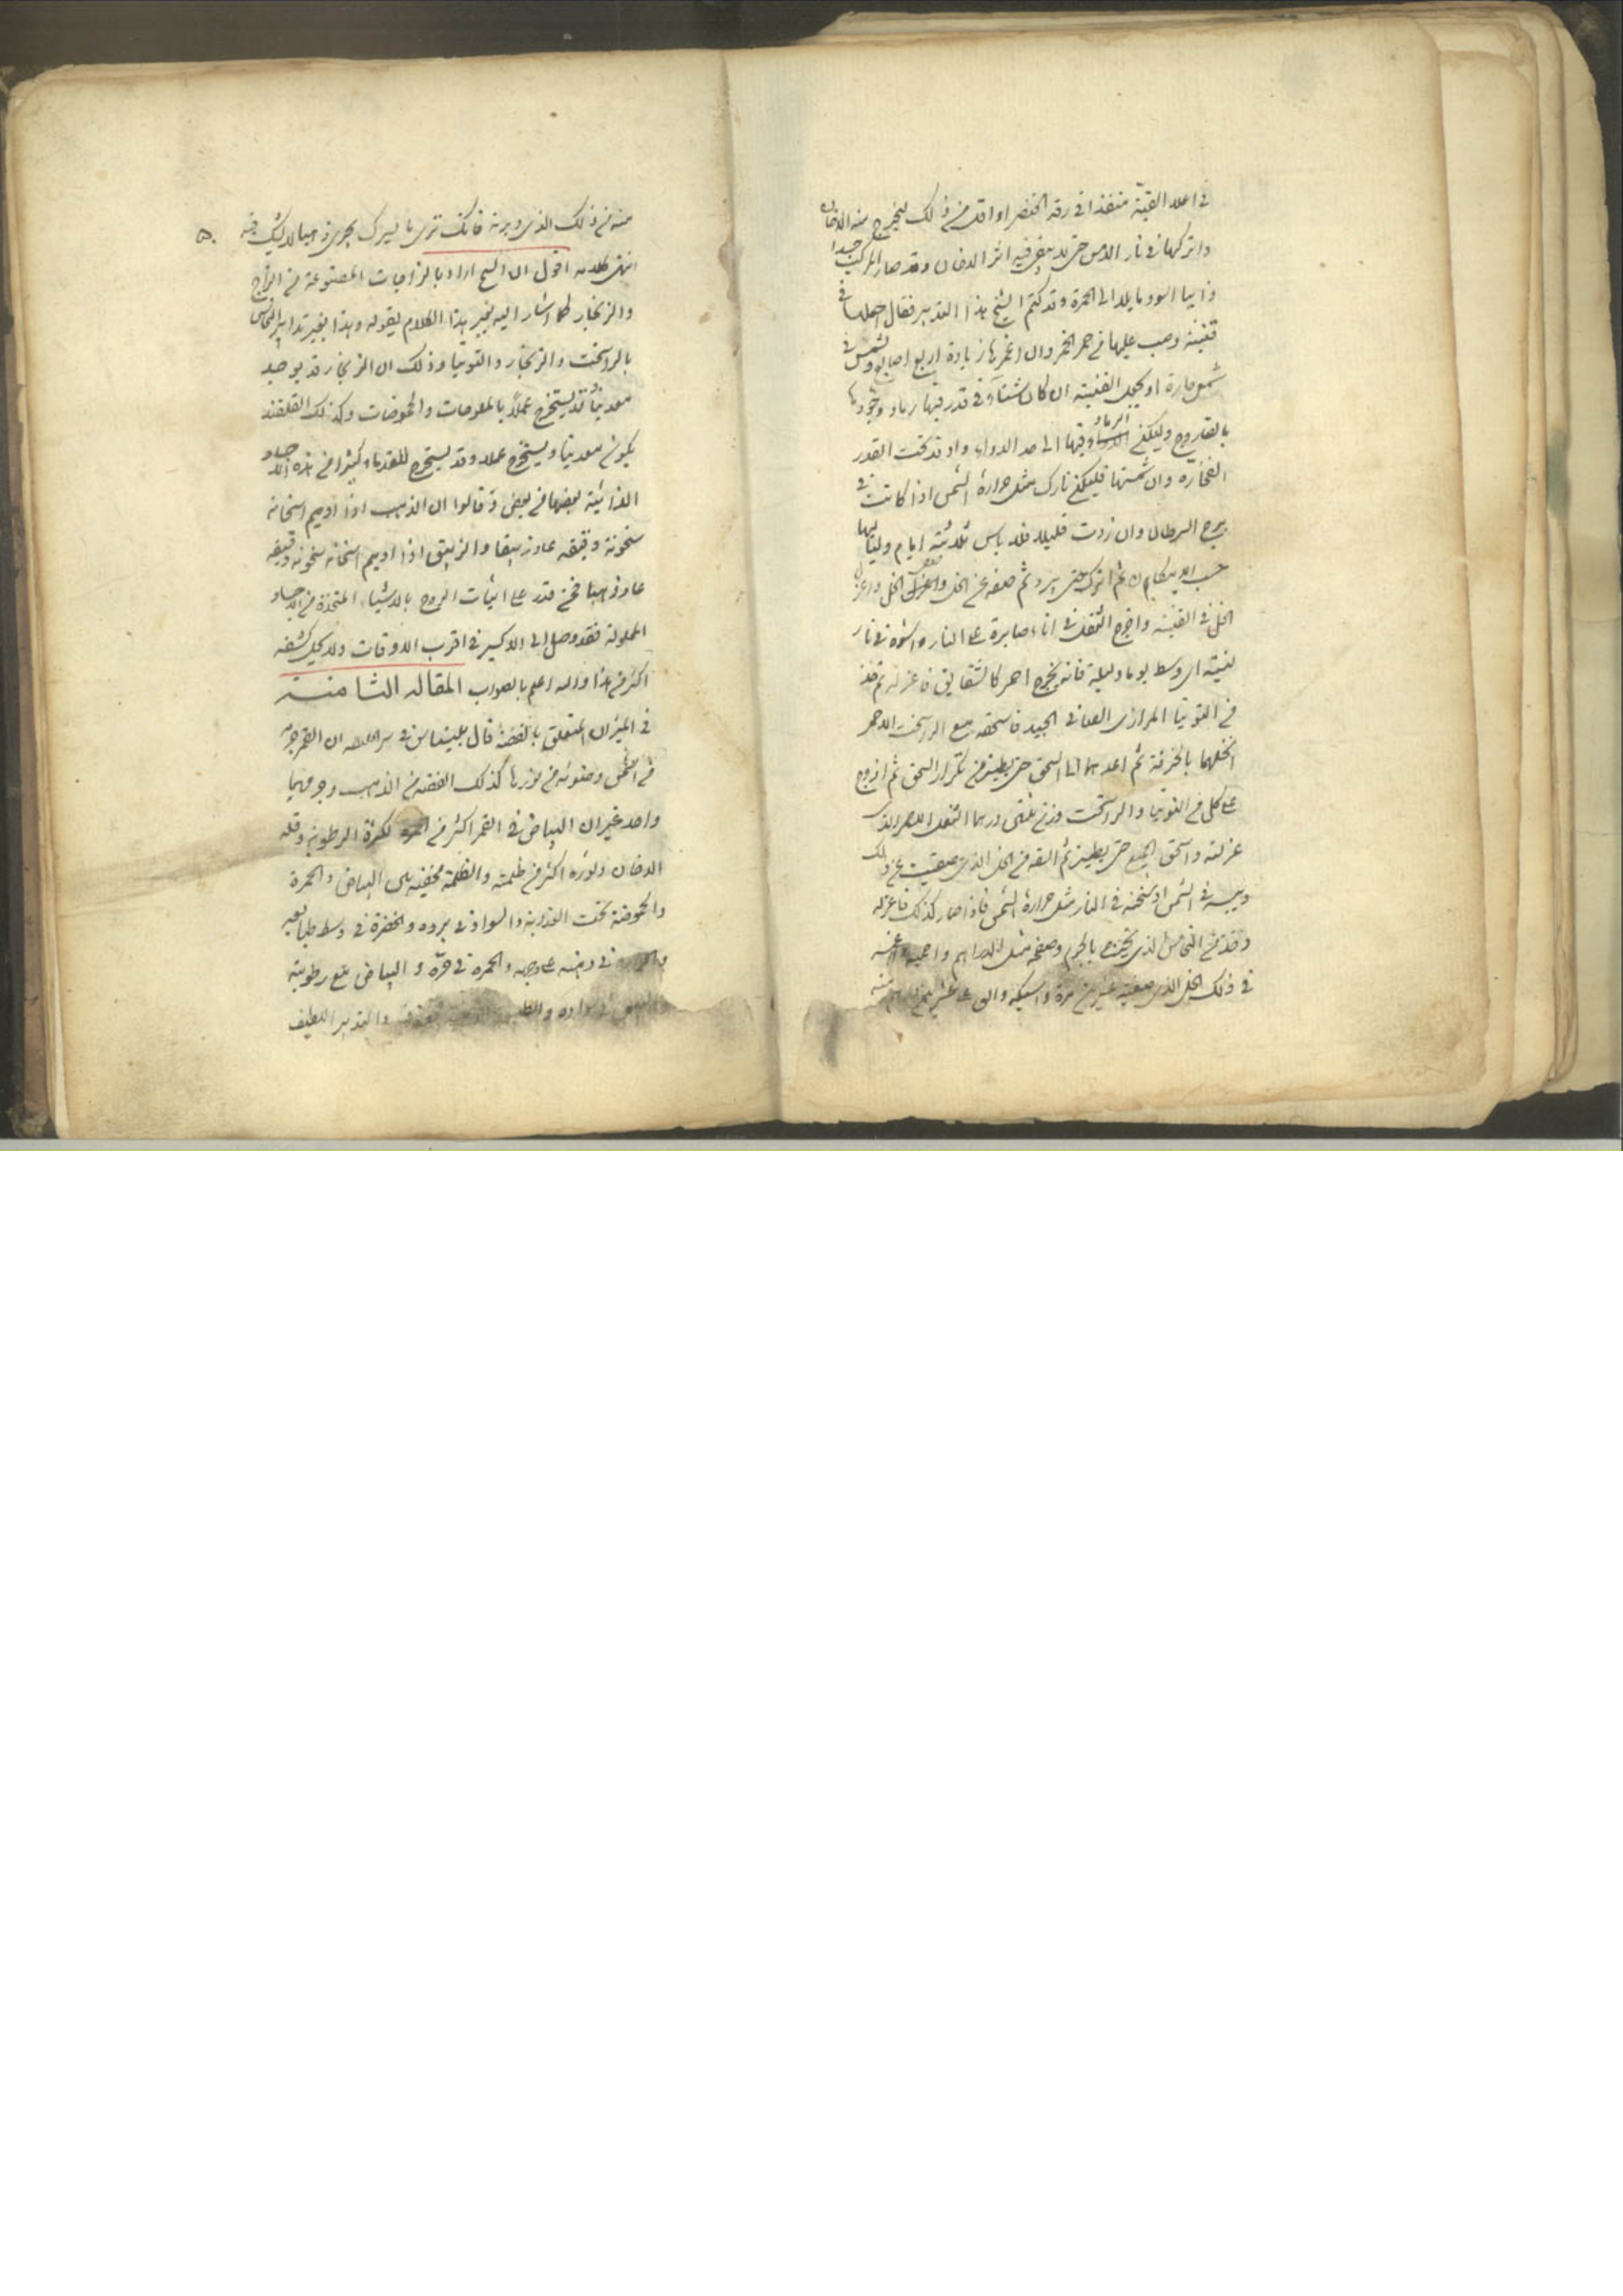 في اعلا القبة منفذا في رقة الخنصر او اقل من ذلك ليخرج منه الدخان
واتركها في نار الدمس حتى لا يبقى فيه اثر الدخان وقد صار المركب جسدا
ذايبا اسود مايلا الى الحمرة وقد كتم الشيخ هذا التدبير فقال اجعلها في
قنينة وصب عليها من خمر الخمر وان اغمرها زيادة اربع اصابع وشمس في
شمس حارة او تجعل القنينة ان كان شتاء في قدر فيها رماد
وليكن الرماد فيها الى حد الدواء واوقد تحت القدر
الفخارة وان شمستها فليكن نارك مثل حرارة الشمس اذا كانت في
برج السرطان وان زدت قليلا فلا باس ثلاثة ايام ولياليها
حسب الاحكام ثم اتركه حتى يبرد ثم صفه عن الخل واعزل
الخل في القنينة واخرج الثفل في اناء صابرة على النار واشوه في نار
لينية اي وسط يوما وليلة فانه يخرج احمر كالشقايق فاعزله ثم خذ
من التوتيا المرازى العماني الجيد فاسحقه مع الراسخت الاحمر
انخلهما بالخرقة ثم اعدهما الى السحق حتى يطيرن من تكرار السحق ثم امزج
على كل من التوتيا والراسخت وزن ثلثي درهما الثفل الاحمر الذي
عزلته واسحق الجميع حتى يطير ثم القه في الخل الذي صفيت عن ذلك
ويبسه في الشمس او سخنه في النار مثل حرارة الشمس فاذا صار كذلك فاعزله
وخذ من النحاس الذي وصفحه مثل الدراهم واحميه واغمسه
في ذلك الخل الذي صفيته عشرين مرة واسبكه والق على عشرين منه
منه من ذلك الذي دبرته فانك ترى ما يسرك يجري ذهبا لا شك فيه
انتهى كلامه اقول ان الشيخ اراد بالزاجات المصنوعة من الزاج
والزنجار كما اشار اليه بخبر هذا الكلام بقوله وهذا بخير تدابير النحاس
بالراسخت والزنجار والتوتيا وذلك ان الزنجار قد يوجد
معدنيا قد يستخرج عملا بالملوحات والحموضات وكذلك القلقند
يكون معدنيا ويستخرج عملا وقد يستخرج للقدماء كثيرا من هذه الاجساد
الذائبة بعضها من بعض وقالوا ان الذهب اذا اديم اسخانه
سخونة رقيقة عاد زيبقا والزيبق اذا اديم اسخانه سخونة رقيقة
عاد ذهبا فمن قدر على اثبات الروح بالاشياء المتخذة من الاجساد
المحلولة فقد وصل الى الاكسير في اقرب الاوقات ولا يحل كشفه
اكثر من هذا والله اعلم بالصواب المقالة الثامنة
في الميزان المتعلق بالفضة قال بلينياس في سر الخلقه ان القمر جزء
من الشمس وضوئه من نورها كذلك الفضة من الذهب وجوهرهما
واحد غير ان البياض في القمر اكثر من الحمرة لكثرة الرطوبة وقلة
الدخان ونوره اكثر من ظلمته والظلمة مخفية في البياض والحمرة
والحموضة تحت العذوبة والسواد في برده والخضرة في وسط طبايعه
في ذهبه على وجهه والحمرة في حره والبياض مع رطوبته
والتدبير اللطيف